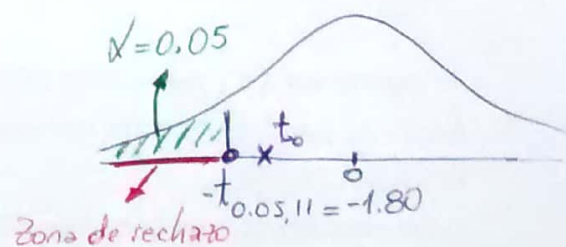 α=0.05
t₀
0
-t₀.₀₅,₁₁ = -1.80
Zona de rechazo